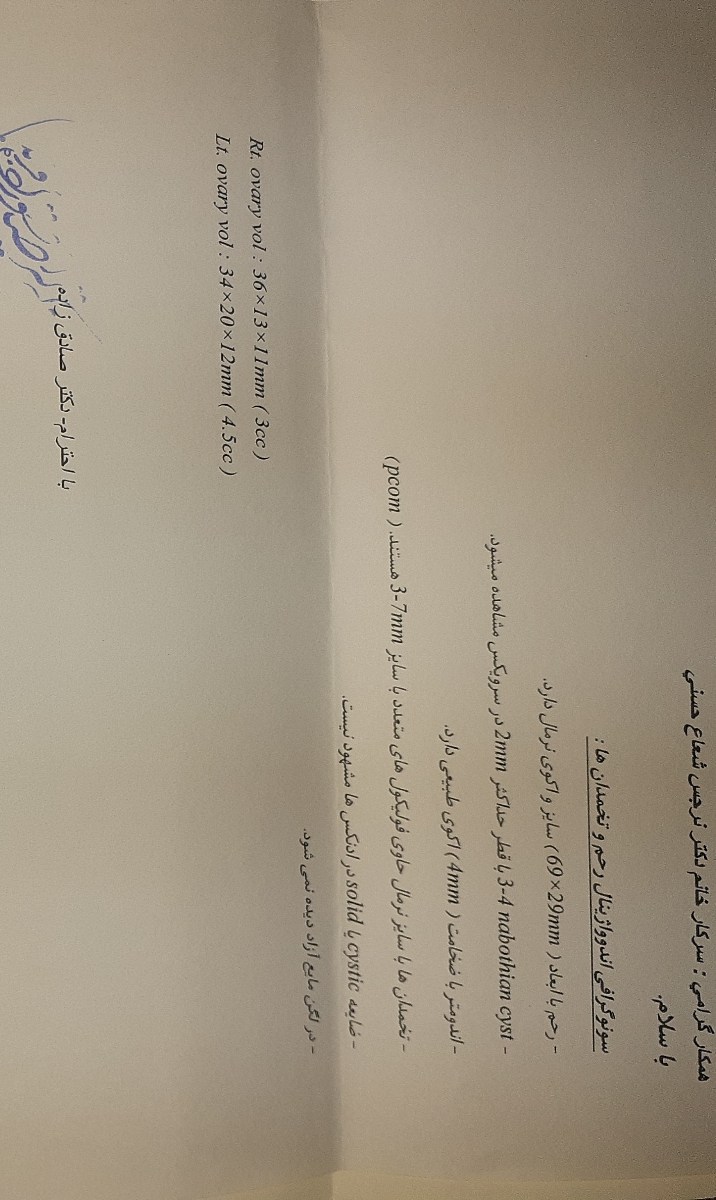 همکار گرامي : سرکار خانم دکتر نرجس شعاع حسني
با سلام.
سونوگرافی اندوواژینال رحم و تخمدان ها :
- رحم با ابعاد ( 69×29mm ) سایز و اکوی نرمال دارد.
- 3-4 nabothian cyst با قطر حداکثر 2mm در سرویکس مشاهده میشود.
- اندومتر با ضخامت ( 4mm ) اکوی طبیعی دارد.
- تخمدان ها با سایز نرمال حاوی فولیکول های متعدد با سایز 3-7mm هستند. ( pcom )
- ضایعه cystic یا solid در ادنکس ها مشهود نیست.
- در لگن مایع آزاد دیده نمی شود.
Rt. ovary vol : 36×13×11mm ( 3cc )
Lt. ovary vol : 34×20×12mm ( 4.5cc )
با احترام- دکتر صادق زاده